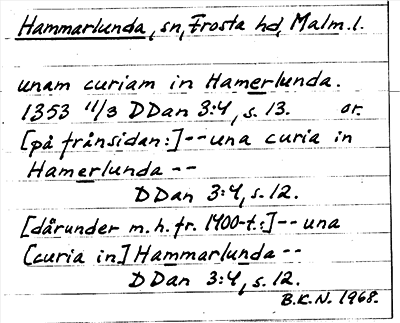 Hammarlunda, sn, Frosta hd, Malm. l.
unam curiam in Hamerlunda.
1353 11/3 DDan 3:4, s. 13. or.
[på frånsidan:]--una curia in
Hamerlunda --
DDan 3:4, s. 12.
[därunder m. h. fr. 1400-t.:]--una
[curia in] Hammarlunda --
DDan 3:4, s. 12.
B.E.N. 1968.